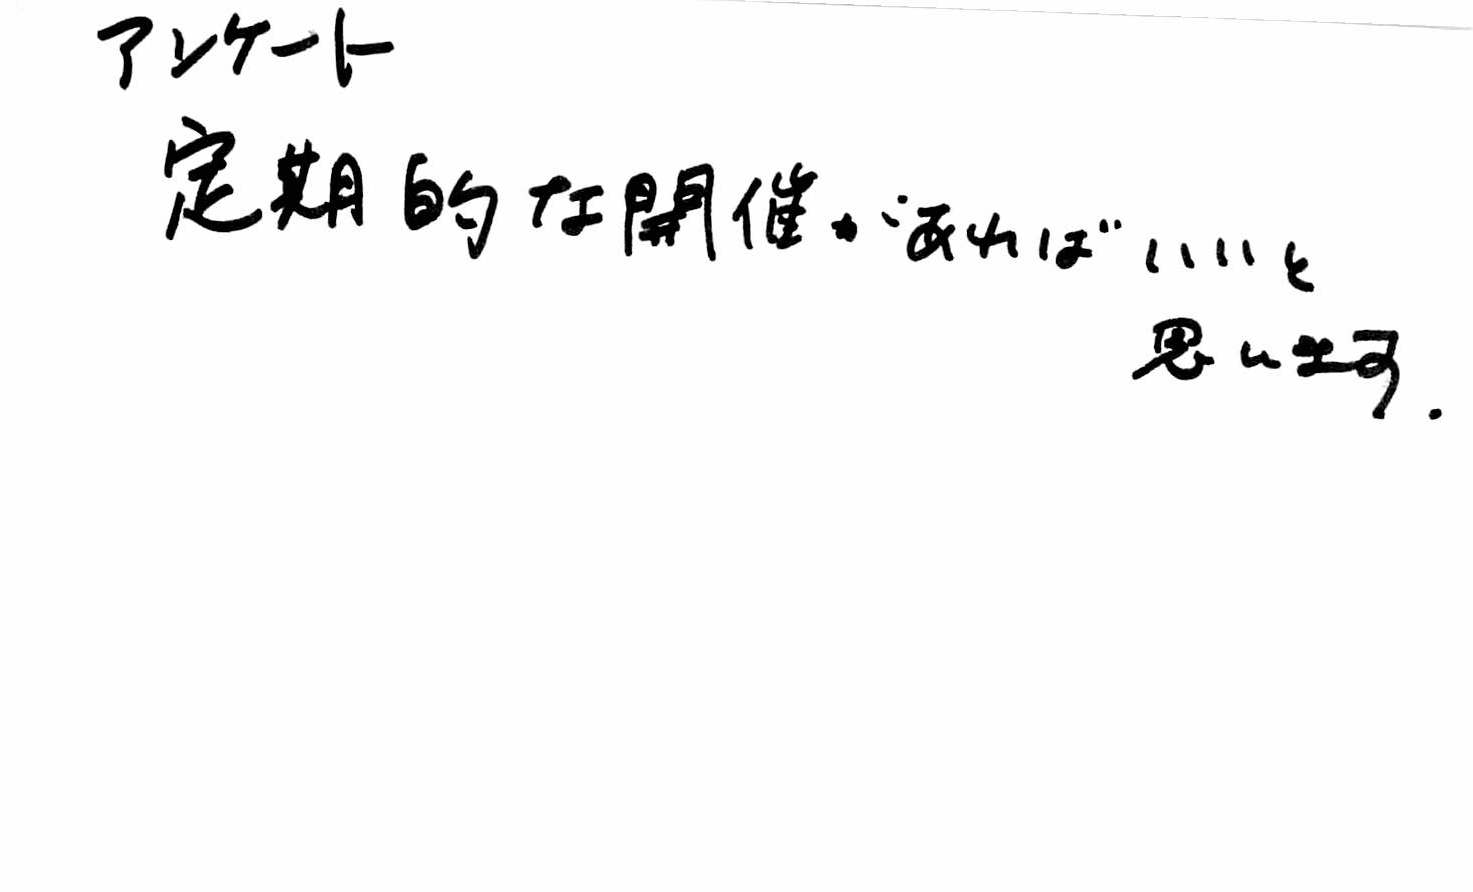 アンケート
定期的な開催があればいいと
思います.